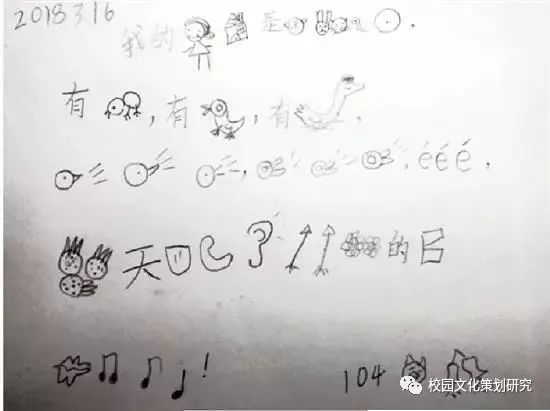 2018 3 16
我的 是 .
有 ,有 ,有 ,
,é é é ,
天 的
!
104
校园文化策划研究